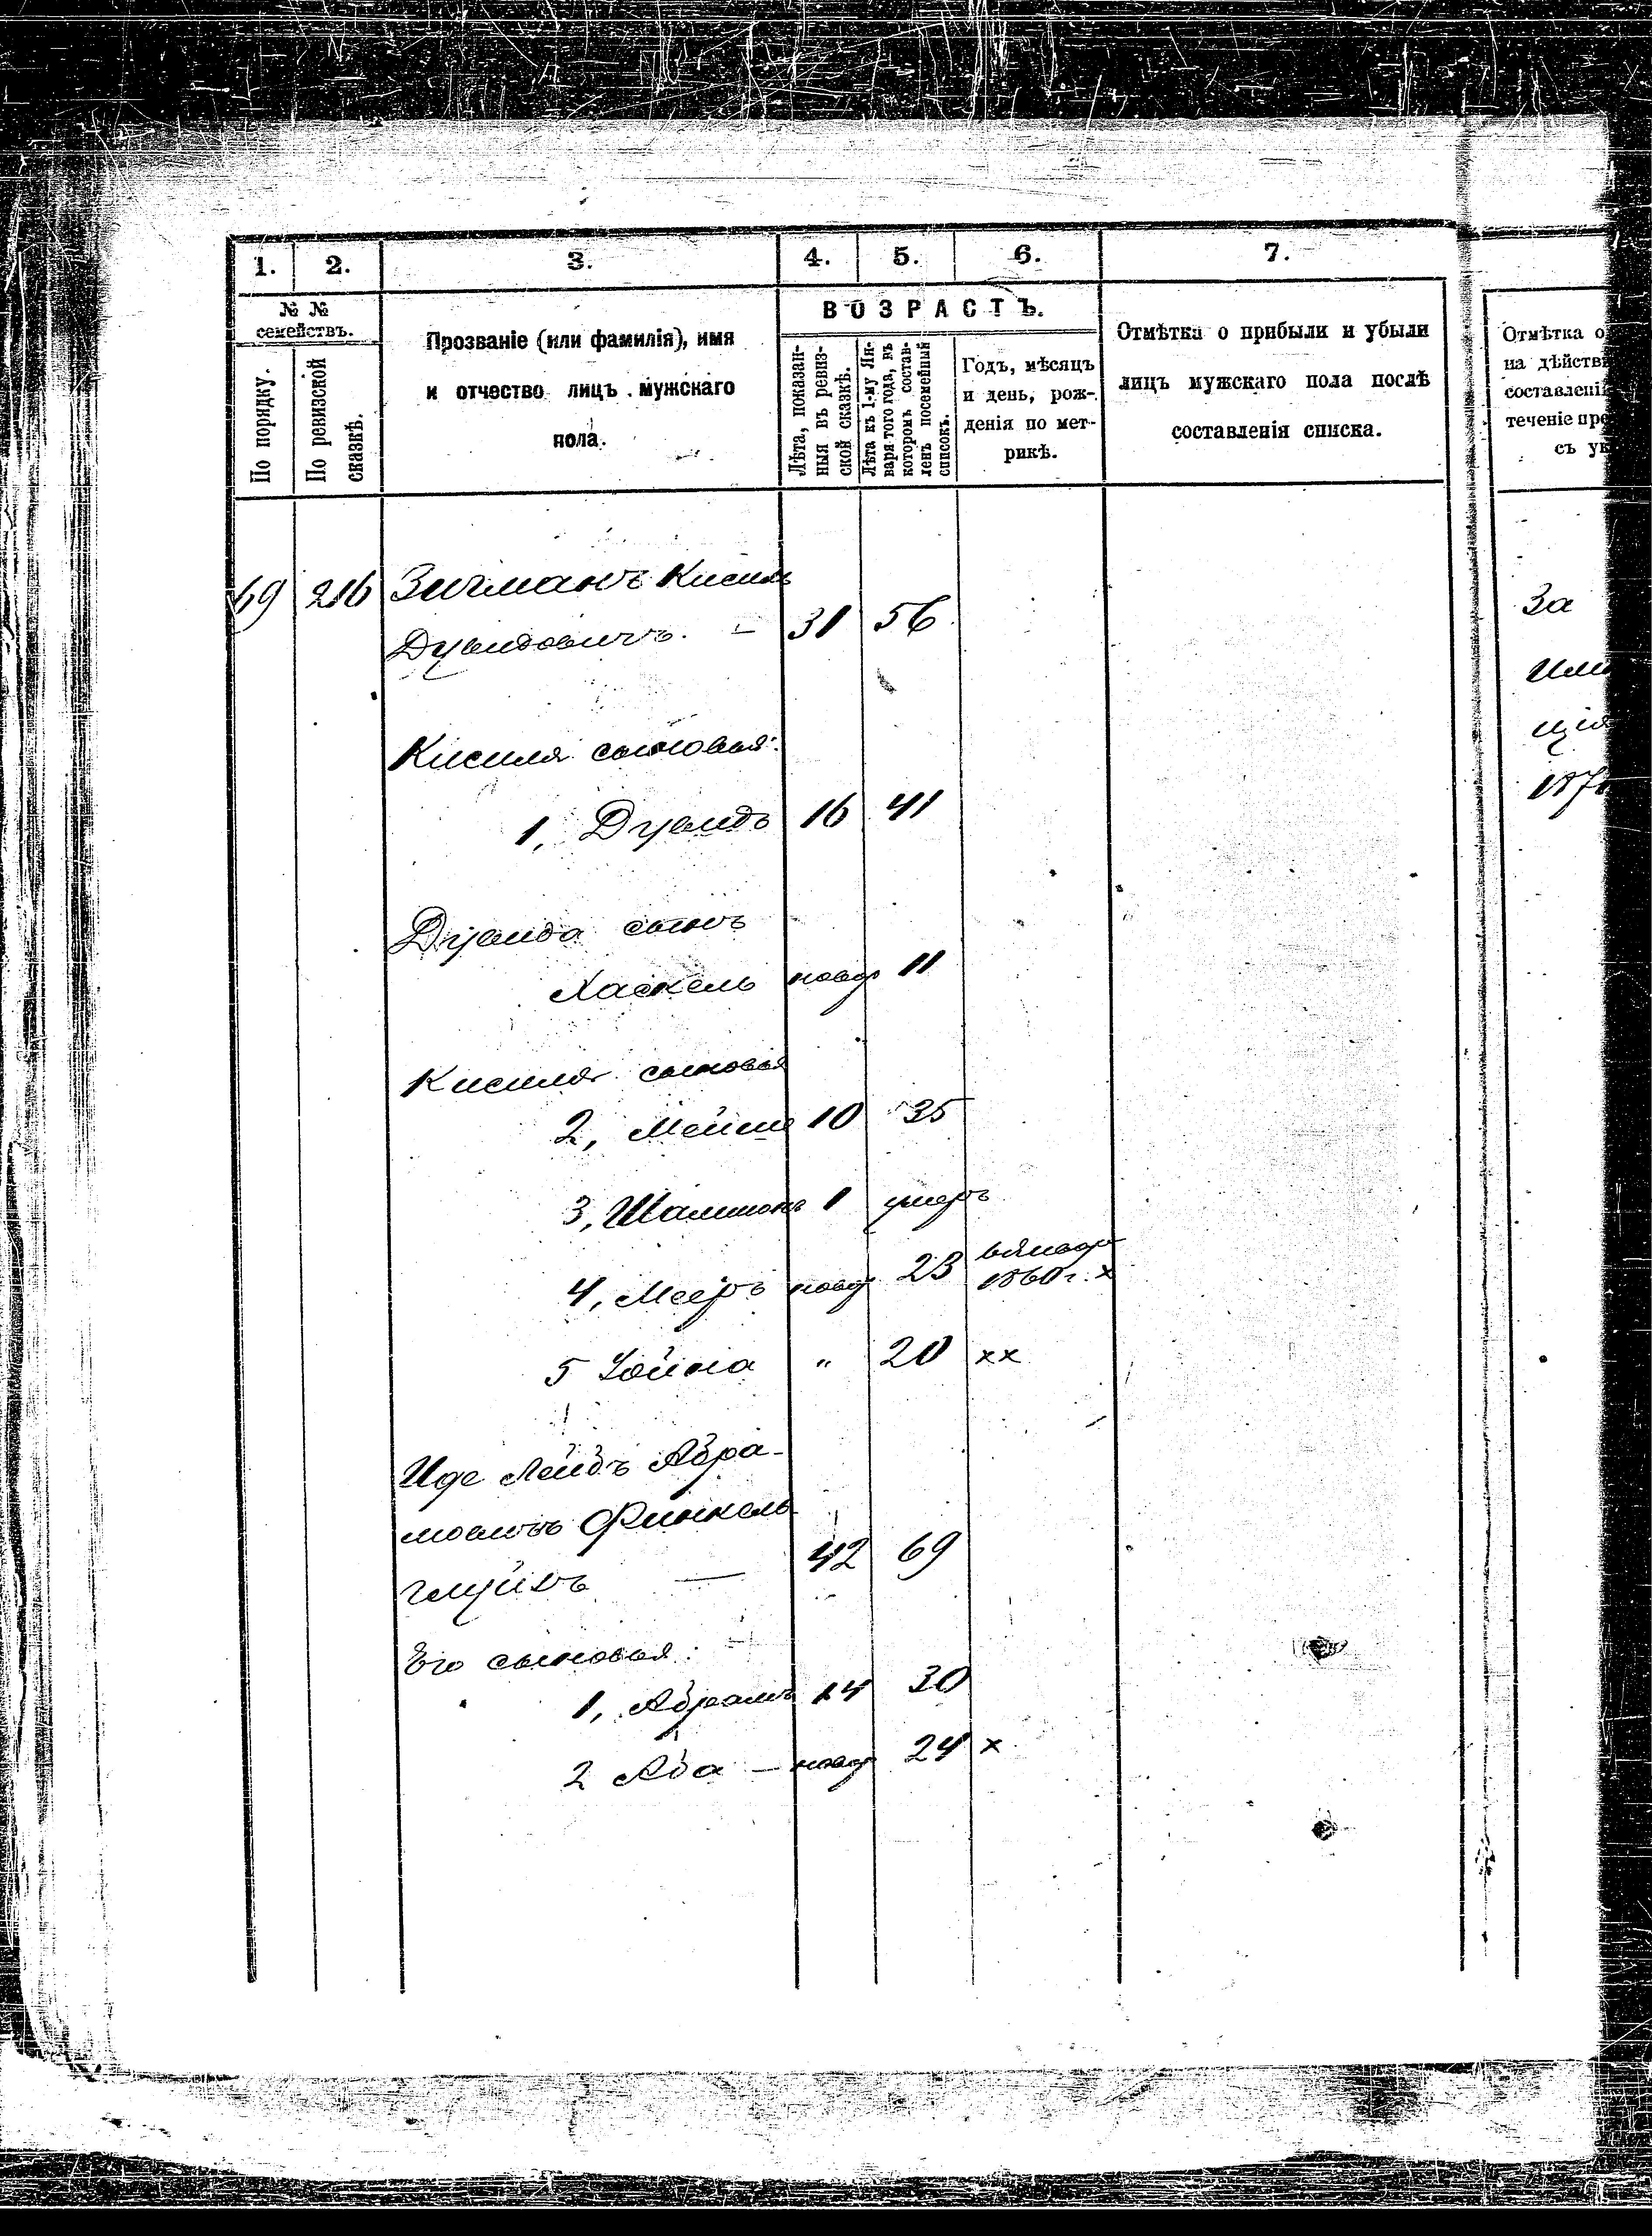 1. 2. 3. 4. 5. 6. 7.
№ №
семействъ.
По порядку.
По ревизской
сказкѣ.
Прозваніе (или фамилія), имя
и отчество лицъ мужскаго
пола.
ВОЗРАСТЪ.
Лѣта, показан-
ныя въ ревиз-
ской сказкѣ.
Лѣта къ 1-му Ян-
варя того года, въ
которомъ состав-
ленъ посемейный
списокъ.
Годъ, мѣсяцъ
и день, рож-
денія по мет-
рикѣ.
Отмѣтка о прибыли и убыли
лицъ мужскаго пола послѣ
составленія списка.
Отмѣтка о
на дѣйств
составлені
теченіе пре
съ ук
69 216 Зигманъ Кисиль
Дувидовичъ. — 31 56
Кисиля сыновья:
1, Дувидъ 16 41
Дувида сынъ
Хаскель новор 11
Кисиля сыновья
2, 10 35
3, 1 умеръ
4, Мееръ новор 23
1860 г. х
5 Іойна " 20 хх
Иде Лейбъ Абра-
мовичъ Финкель-
— 42 69
Его сыновья:
1, Абрамъ 14 30
2 Аба — новор 24 х
За